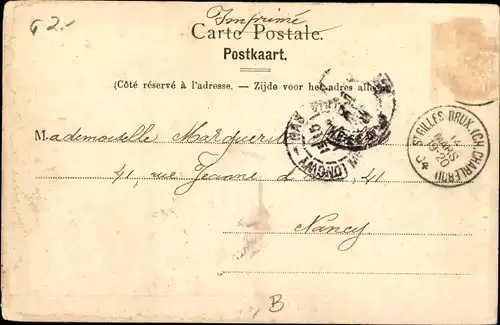 62.-
Imprimé
Carte Postale.
Postkaart.
(Côté réservé à l'adresse. — Zijde voor het adres
ST GILLES (BRUX.) (CH. CHARLEROI)
14
MARS
LONGWY
Mademoiselle Marguerite
41, rue Jeanne d'Arc, 41
Nancy
B